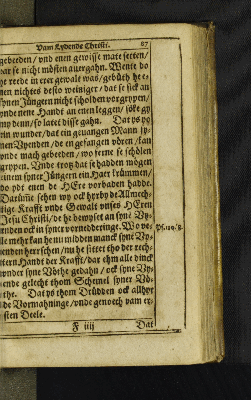 Vam Lydende Christi. 87
gebeeden / vnd enen gewisse mate setten /
aar se nicht môsten auergahn. Wente do
ye reede in erer gewalt was / gebůth he e-
nen nichtes desto weiniger / dat se sick an
synen Jüngern nicht scholden vorgrypen /
vnde nene Handt an enen leggen / sôke gy
my denn / so latet disse gahn. Dat ys yo
ein wunder / dat ein geuangen Mann sy-
nen Vyenden / de en gefangen vôren / kan
vnde mach gebeeden / wo ferne se schôlen
grypen. Vnde trotz dat se hadden môgen
einem syner Jüngern ein Haer krümmen /
do ydt enen de HEre vorbaden hadde.
Darümme sehen wy ock hyrby de Almech-
tige Krafft vnde Gewalt vnses HEren
Jesu Christi / de he bewyset an syne Vy-
enden ock in syner vornedderinge. Wo ve-
le mehr kan he nu midden manck syne Vy-
enden herrschen / nu he sittet tho der rech-
tern Handt der Krafft / dar ehm alle dinck
vnder syne Vôthe gedahn / ock syne Vy-
ende gelecht thom Schemel syner Vô-
the. Dat ys thom Drüdden ock alhyr
de Vormahninge / vnde genoech vam er-
sten Deele.
Ps. 110. &
F iiij Dat